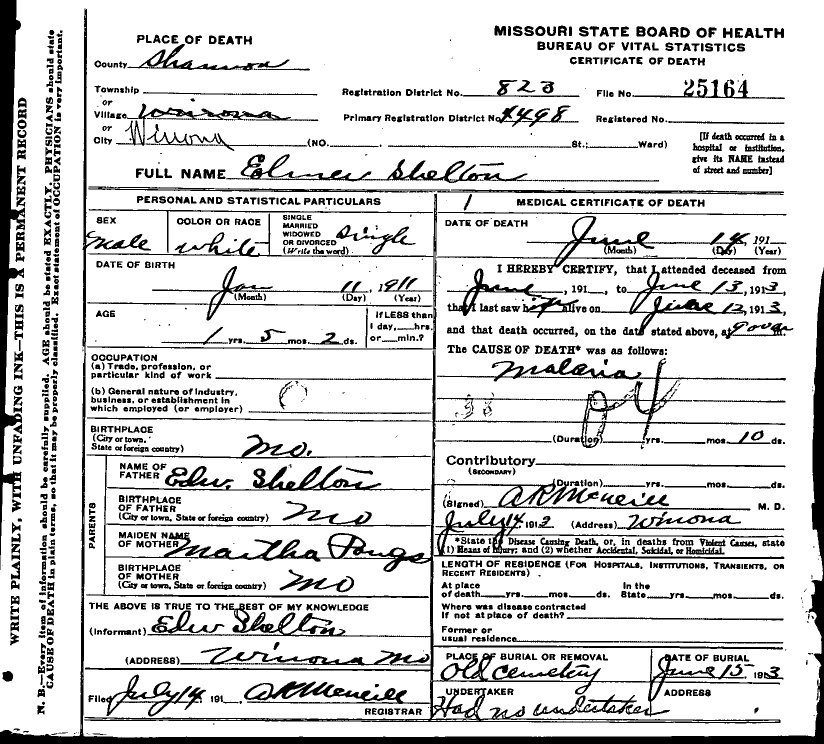 MISSOURI STATE BOARD OF HEALTH
BUREAU OF VITAL STATISTICS
CERTIFICATE OF DEATH
PLACE OF DEATH
County Shannon
Township
or
Village Winona
or
City Winona (NO. St.; Ward)
Registration District No. 823 File No. 25164
Primary Registration District No. 4498 Registered No.
[If death occurred in a
hospital or institution,
give its NAME instead
of street and number]
FULL NAME Elmer Shelton
PERSONAL AND STATISTICAL PARTICULARS
SEX
male
COLOR OR RACE
white
SINGLE
MARRIED
WIDOWED
OR DIVORCED
(Write the word)
Single
DATE OF BIRTH
Jan 11, 1911
(Month) (Day) (Year)
AGE
1 yrs. 5 mos. 2 ds.
If LESS than
1 day, hrs.
or min.?
OCCUPATION
(a) Trade, profession, or
particular kind of work
(b) General nature of industry,
business, or establishment in
which employed (or employer)
BIRTHPLACE
(City or town,
State or foreign country)
Mo.
PARENTS
NAME OF
FATHER Edw. Shelton
BIRTHPLACE
OF FATHER
(City or town, State or foreign country) Mo
MAIDEN NAME
OF MOTHER Martha
BIRTHPLACE
OF MOTHER
(City or town, State or foreign country) Mo
THE ABOVE IS TRUE TO THE BEST OF MY KNOWLEDGE
(Informant) Edw Shelton
(ADDRESS) Winona Mo
Filed July 14 191 A R McNeill
REGISTRAR
1 MEDICAL CERTIFICATE OF DEATH
DATE OF DEATH
June 14, 191
(Month) (Day) (Year)
I HEREBY CERTIFY, that I attended deceased from
June, 191, to June 13, 1913
that I last saw him alive on June 12, 1913,
and that death occurred, on the date stated above, at 9 m.
The CAUSE OF DEATH* was as follows:
Malaria
(Duration) yrs. mos. 10 ds.
Contributory
(SECONDARY)
(Duration) yrs. mos. ds.
(Signed) A R McNeill M. D.
July 14 1913 (Address) Winona
*State the Disease Causing Death, or, in deaths from Violent Causes, state
(1) Means of Injury; and (2) whether Accidental, Suicidal, or Homicidal.
LENGTH OF RESIDENCE (FOR HOSPITALS, INSTITUTIONS, TRANSIENTS, OR
RECENT RESIDENTS)
At place
of death yrs. mos. ds.
In the
State yrs. mos. ds.
Where was disease contracted
if not at place of death?
Former or
usual residence
PLACE OF BURIAL OR REMOVAL
Old Cemetery
DATE OF BURIAL
June 15 1913
UNDERTAKER
Had no undertaker
ADDRESS
WRITE PLAINLY, WITH UNFADING INK—THIS IS A PERMANENT RECORD
N. B.—Every item of information should be carefully supplied. AGE should be stated EXACTLY. PHYSICIANS should state
CAUSE OF DEATH in plain terms, so that it may be properly classified. Exact statement of OCCUPATION is very important.